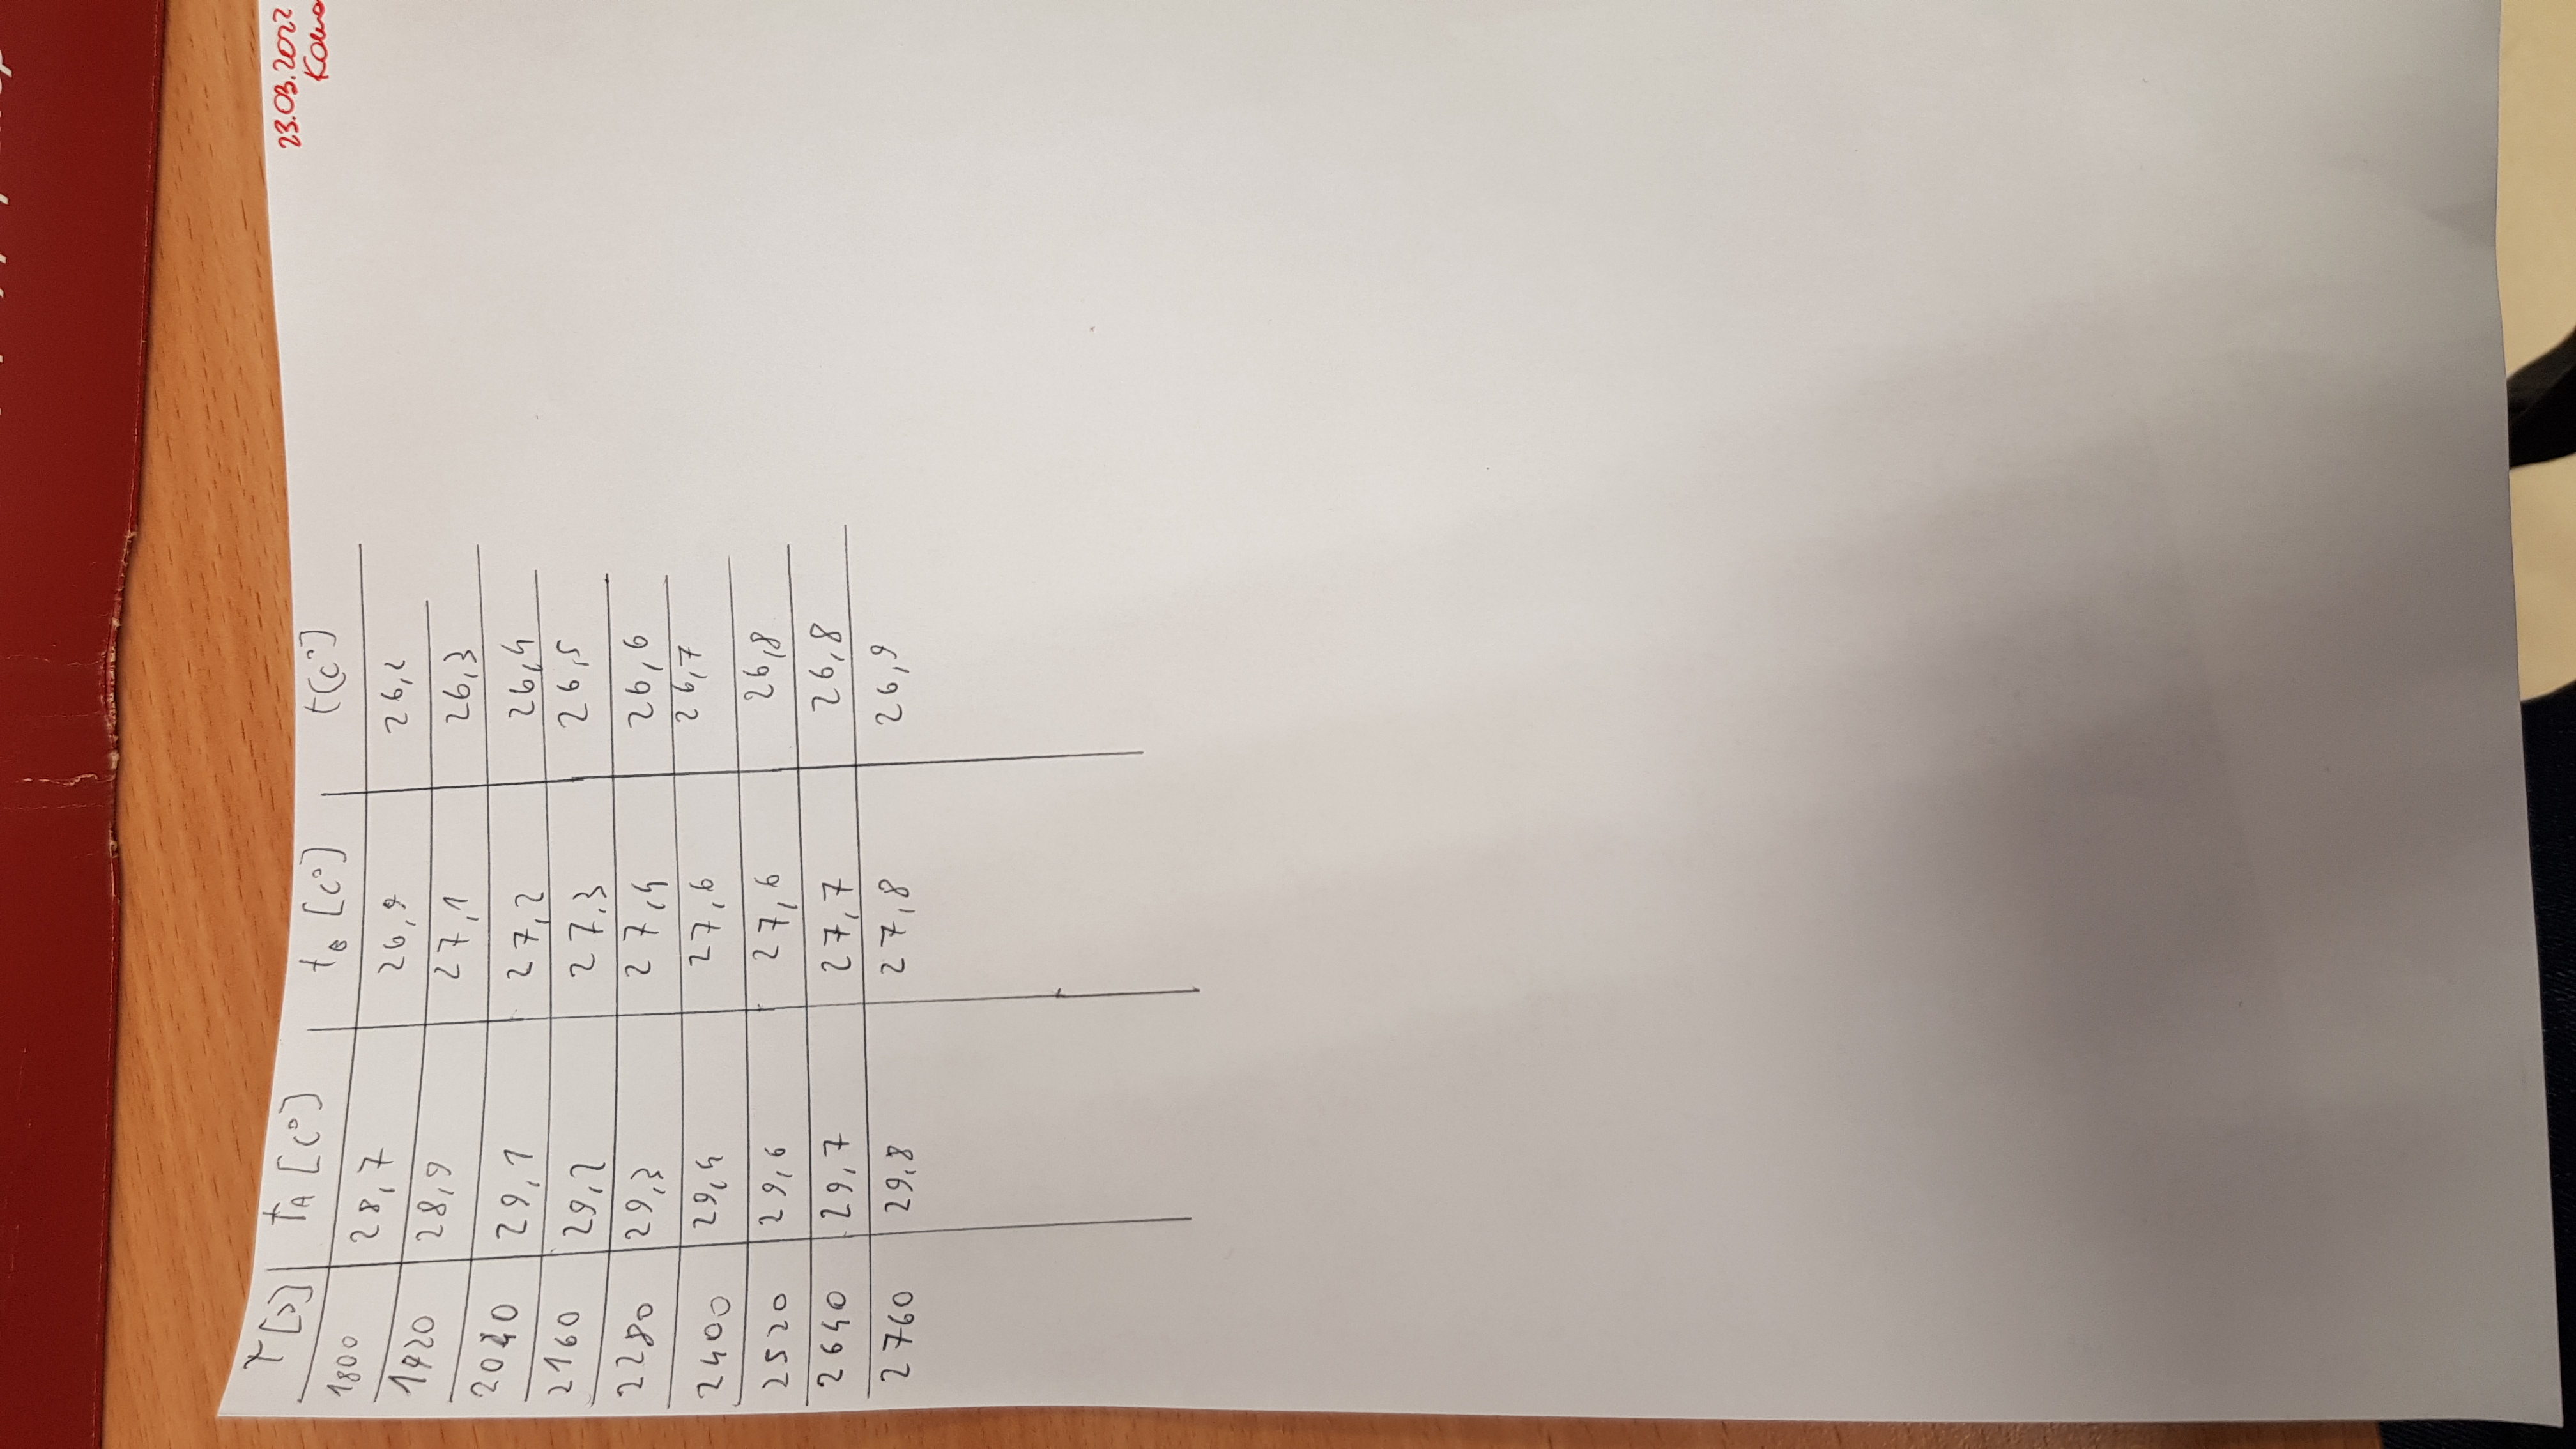 23.03.2022
τ[s] t_A [C°] t_B [C°] t[C°]
1800 28,7 26,9 26,2
1920 28,9 27,1 26,3
2040 29,1 27,2 26,4
2160 29,2 27,3 26,5
2280 29,3 27,4 26,6
2400 29,4 27,6 26,7
2520 29,6 27,6 26,8
2640 29,7 27,7 26,8
2760 29,8 27,8 26,9